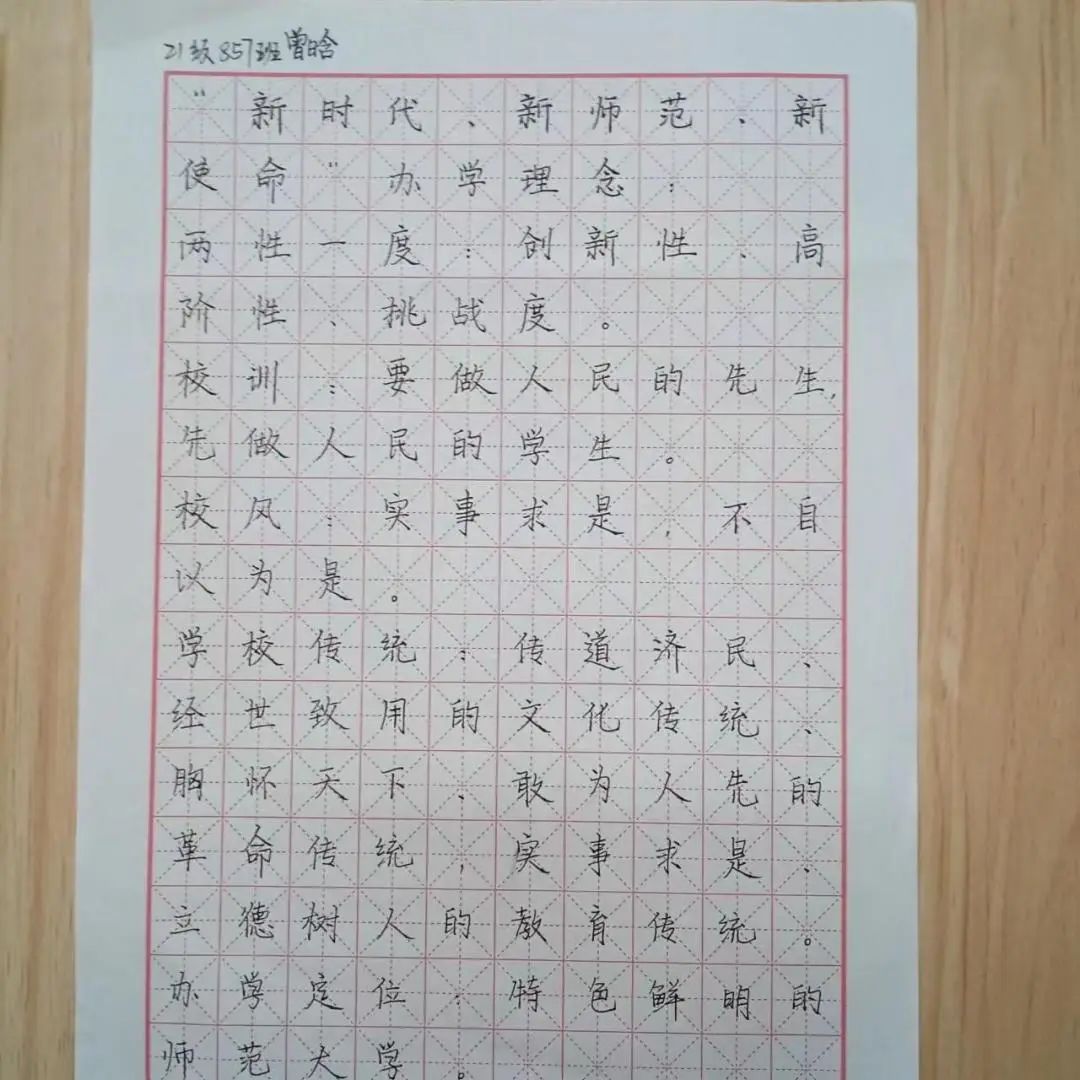 21级857班曾晗
“新时代、新师范、新
使命”办学理念：
两性一度：创新性、高
阶性、挑战度。
校训：要做人民的先生，
先做人民的学生。
校风：实事求是，不自
以为是。
学校传统：传道济民、
经世致用的文化传统、
胸怀天下、敢为人先的
革命传统，实事求是、
立德树人的教育传统。
办学定位：特色鲜明的
师范大学。